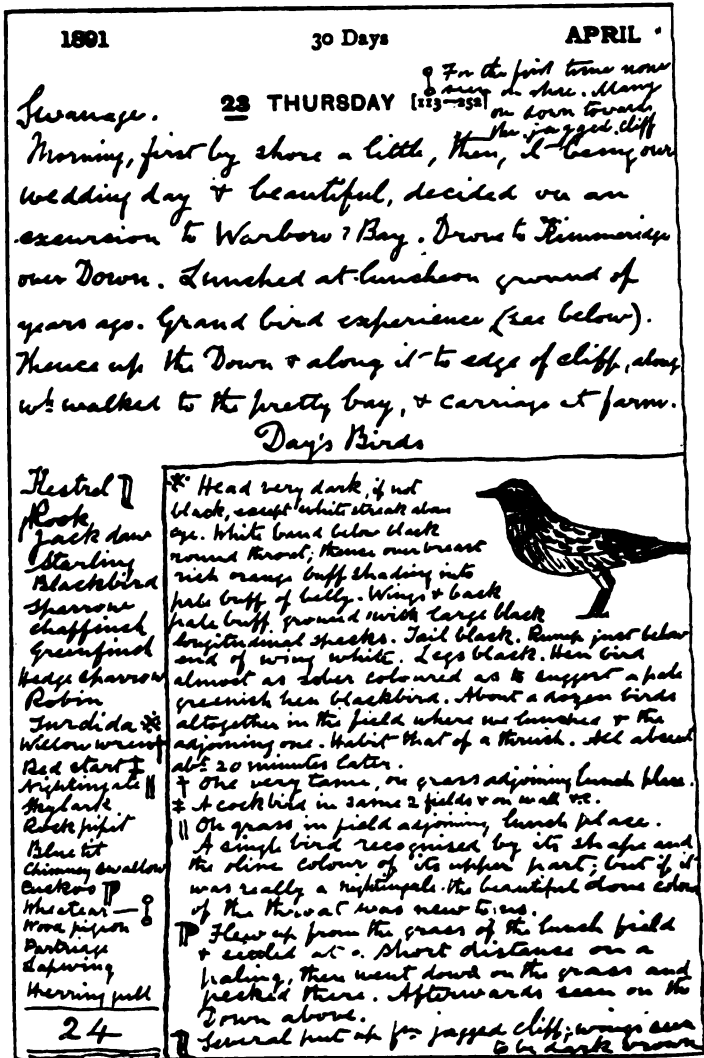 1891 30 Days APRIL
For the first time none
seen on shore. Many
Swanage. 23 THURSDAY [113—252] on down towards
the jagged cliff
Morning, first by shore a little, then, it being our
wedding day & beautiful, decided on an
excursion to Warboro? Bay. Drove to Kimmeridge
over Down. Lunched at luncheon ground of
years ago. Grand bird experience (see below).
Thence up the Down & along it to edge of cliff, along
wh walked to the pretty bay, & carriage at farm.
Day's Birds
Kestrel
Rook
Jackdaw
Starling
Blackbird
Sparrow
Chaffinch
Greenfinch
Hedge sparrow
Robin
Turdida *
Willow wren †
Red start ‡
Nightingale ||
Skylark
Rock pipit
Blue tit
Chimney swallow
Cuckoo
Wheatear
Wood pigeon
Partridge
Lapwing
Herring gull
24
* Head very dark, if not
black, except white streak above
eye. White band below black
round throat; thence over breast
rich orange buff shading into
pale buff of belly. Wings & back
pale buff ground with large black
longitudinal specks. Tail black. Rump just below
end of wing white. Legs black. Hen bird
almost as sober coloured as to suggest a pale
greenish hen blackbird. About a dozen birds
altogether in the field where we lunched & the
adjoining one. Habit that of a thrush. All absent
abt 20 minutes later.
† One very tame, on grass adjoining lunch place.
‡ A cock bird in same 2 fields & on wall &c.
|| On grass in field adjoining lunch place.
A single bird recognised by its shape and
the olive colour of its upper part; but if it
was really a nightingale the beautiful dove colour
of the throat was new to us.
Flew up from the grass of the lunch field
& settled at a short distance on a
paling, then went down on the grass and
pecked there. Afterwards seen on the
Down above.
Several put up fm jagged cliff; wings seen
to be dark brown